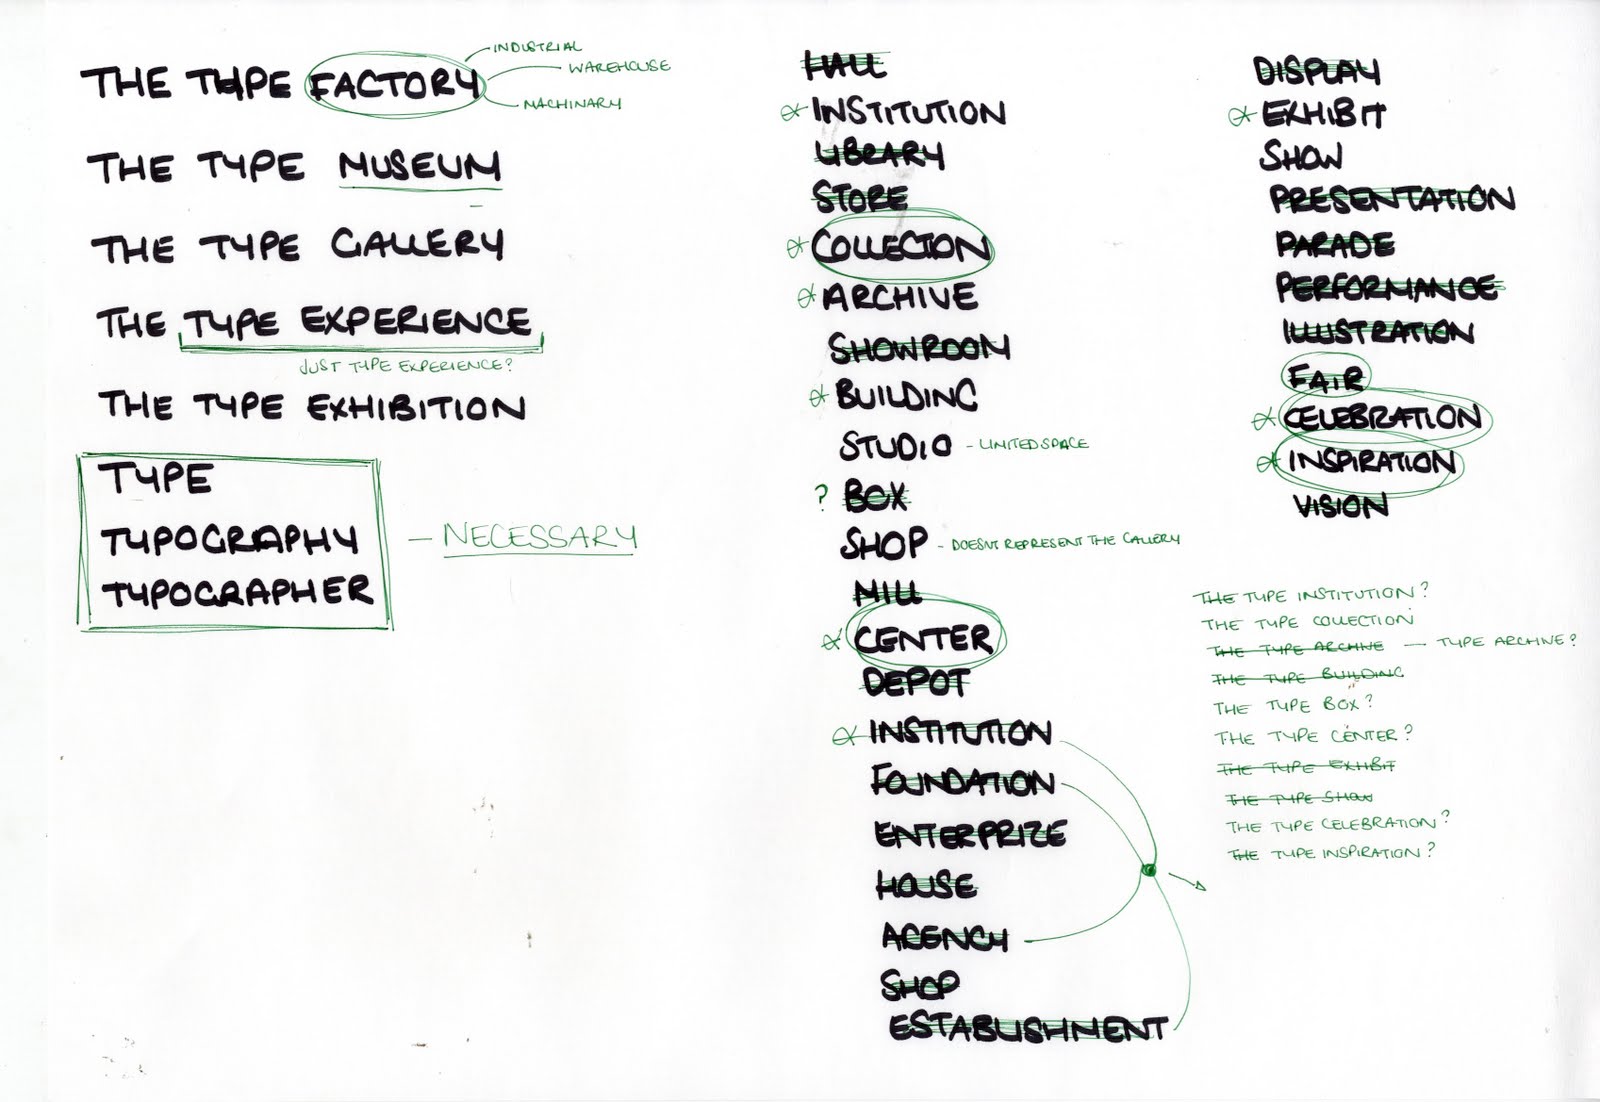 THE TYPE FACTORY
INDUSTRIAL
WAREHOUSE
MACHINARY
THE TYPE MUSEUM
THE TYPE GALLERY
THE TYPE EXPERIENCE
JUST TYPE EXPERIENCE?
THE TYPE EXHIBITION
TYPE
TYPOGRAPHY
TYPOGRAPHER
- NECESSARY
HALL
INSTITUTION
LIBRARY
STORE
COLLECTION
ARCHIVE
SHOWROOM
BUILDING
STUDIO - LIMITED SPACE
? BOX
SHOP - DOESNT REPRESENT THE GALLERY
MILL
CENTER
DEPOT
INSTITUTION
FOUNDATION
ENTERPRIZE
HOUSE
AGENCY
SHOP
ESTABLISHMENT
DISPLAY
EXHIBIT
SHOW
PRESENTATION
PARADE
PERFORMANCE
ILLUSTRATION
FAIR
CELEBRATION
INSPIRATION
VISION
THE TYPE INSTITUTION?
THE TYPE COLLECTION
THE TYPE ARCHIVE - TYPE ARCHIVE?
THE TYPE BUILDING
THE TYPE BOX?
THE TYPE CENTER?
THE TYPE EXHIBIT
THE TYPE SHOW
THE TYPE CELEBRATION?
THE TYPE INSPIRATION?